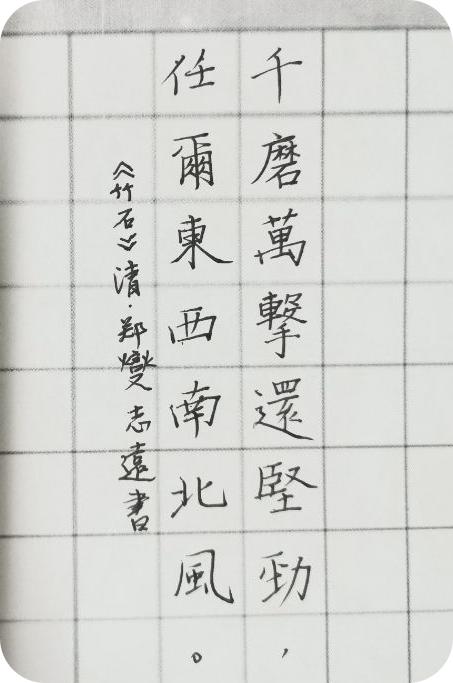 千磨萬擊還堅勁，
任爾東西南北風。
《竹石》清·郑燮 志遠書